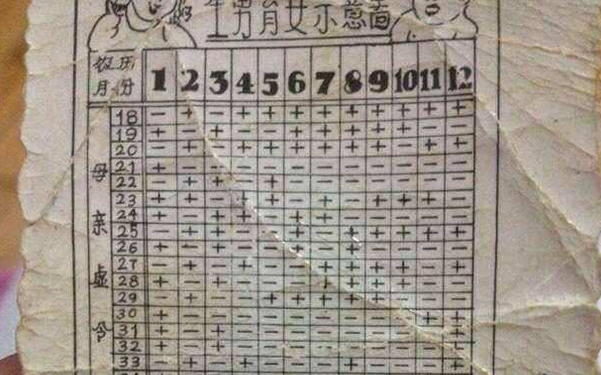 生男育女示意啚
农历月份 1 2 3 4 5 6 7 8 9 10 11 12
母亲虚令
18 − + − + + + + + + + + +
19 + − + − − + + + + + − −
20 − + − + + + + + + − + +
21 + − − − − − − − − − − −
22 − + + − + − − − − − − −
23 + + − + + − + − + + + −
24 + − + + − + + − − − − −
25 − + + − − + − + + + + +
26 + − + − − + − + − − − −
27 − + − + − − + + + + − +
28 + − + − − − + + + + − −
29 − + − − + + + + + − − −
30 + − − − − − − − − − + +
31 + − + − − − − − − − − +
32 + − + − − − − − − − − +
33 − + − + − − − + − − − +